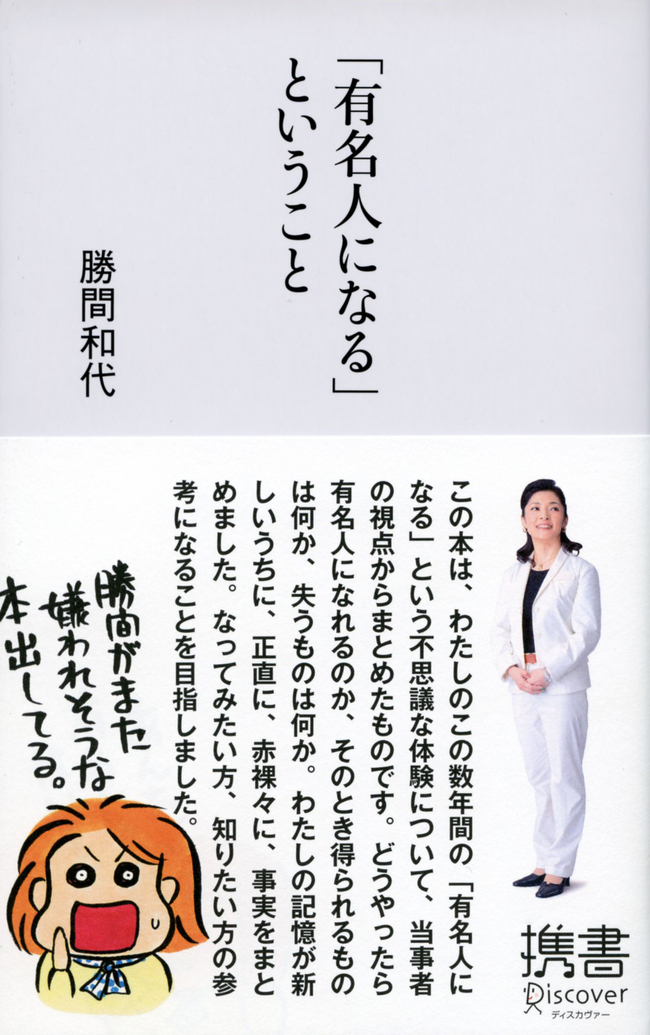 「有名人になる」
ということ
勝間和代
この本は、わたしのこの数年間の「有名人に
なる」という不思議な体験について、当事者
の視点からまとめたものです。どうやったら
有名人になれるのか、そのとき得られるもの
は何か、失うものは何か。わたしの記憶が新
しいうちに、正直に、赤裸々に、事実をまと
めました。なってみたい方、知りたい方の参
考になることを目指しました。
勝間がまた
嫌われそうな
本出してる。
携書
Discover
ディスカヴァー